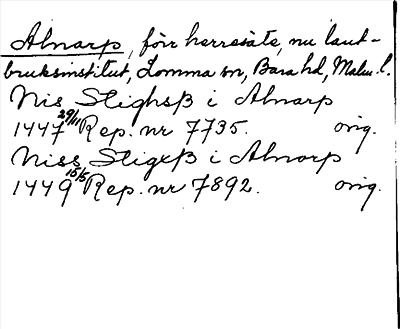 Alnarp, förr herresäte, nu lant-
bruksinstitut, Lomma sn, Bara hd, Malm. l.
Nis Stighsß i Alnarp
1447 29/11 Rep. nr 7735. orig.
Niss Stigeß i Alnarp
1449 15/5 Rep. nr 7892. orig.